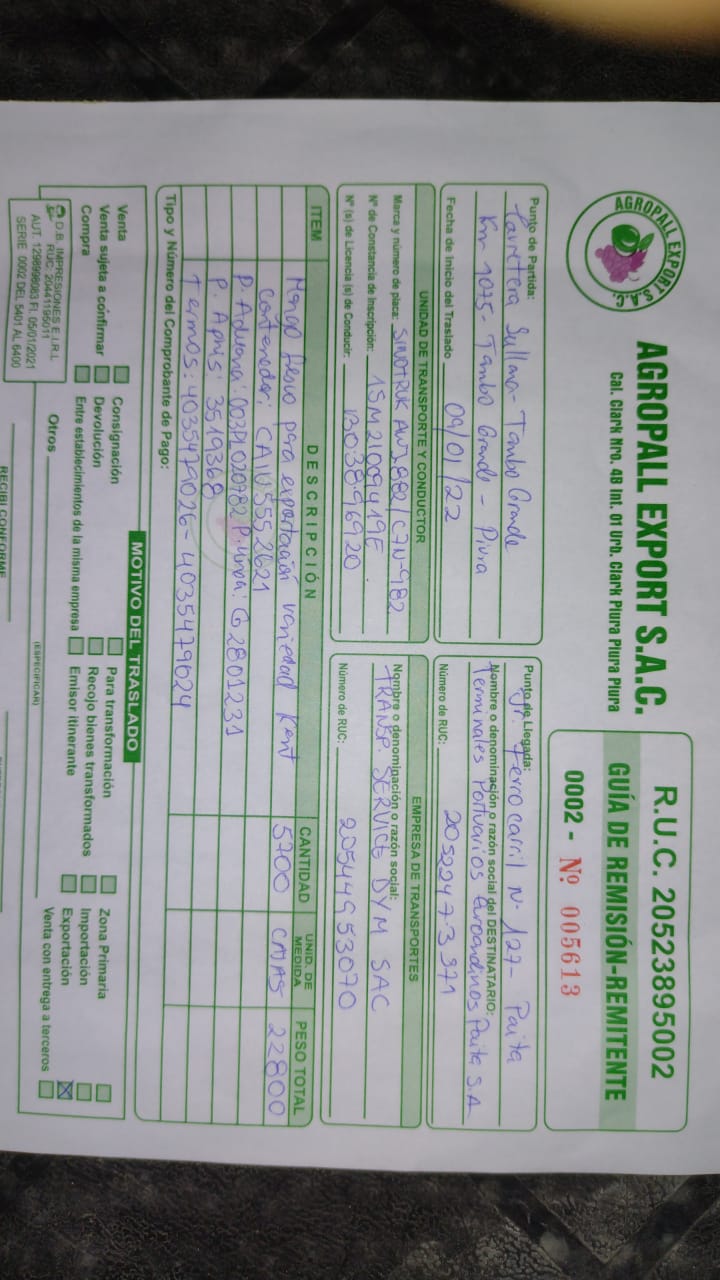 AGROPALL EXPORT S.A.C.
AGROPALL EXPORT S.A.C.
Cal. Clark Nro. 48 Int. 01 Urb. Clark Piura Piura Piura
R.U.C. 20523895002
GUÍA DE REMISIÓN-REMITENTE
0002 - Nº 005613
Punto de Partida:
Carretera Sullana - Tambo Grande
Km 1075 - Tambo Grande - Piura
Fecha de Inicio del Traslado 09/01/22
Punto de Llegada:
Jr. Ferrocarril Nº 127 - Paita
Nombre o denominación o razón social del DESTINATARIO:
Terminales Portuarios Euroandinos Paita S.A
Número de RUC: 20522473571
UNIDAD DE TRANSPORTE Y CONDUCTOR
Marca y número de placa: SINOTRUK / C7N-982
Nº de Constancia de Inscripción: 15M21009419E
Nº (s) de Licencia (s) de Conducir: B03896920
EMPRESA DE TRANSPORTES
Nombre o denominación o razón social:
TRANSP. SERVICE DYM SAC
Número de RUC: 20544953070
ITEM DESCRIPCIÓN CANTIDAD UNID. DE MEDIDA PESO TOTAL
Mango fresco para exportación variedad Kent 5700 CAJAS 22800
Contenedor: CAIU5552621
P. Aduana: P. Linea: G2801231
P. Aphis: 3519368
Termos: 4035479026 - 4035479024
Tipo y Número del Comprobante de Pago:
MOTIVO DEL TRASLADO
Venta Consignación Para transformación Zona Primaria
Venta sujeta a confirmar Devolución Recojo bienes transformados Importación
Compra Entre establecimientos de la misma empresa Emisor itinerante Exportación
Otros Venta con entrega a terceros
(ESPECIFICAR)
D.B. IMPRESIONES E.I.R.L.
RUC: 20441195011
AUT. 1298998083 FI. 05/01/2021
SERIE 0002 DEL 5401 AL 6400
RECIBÍ CONFORME